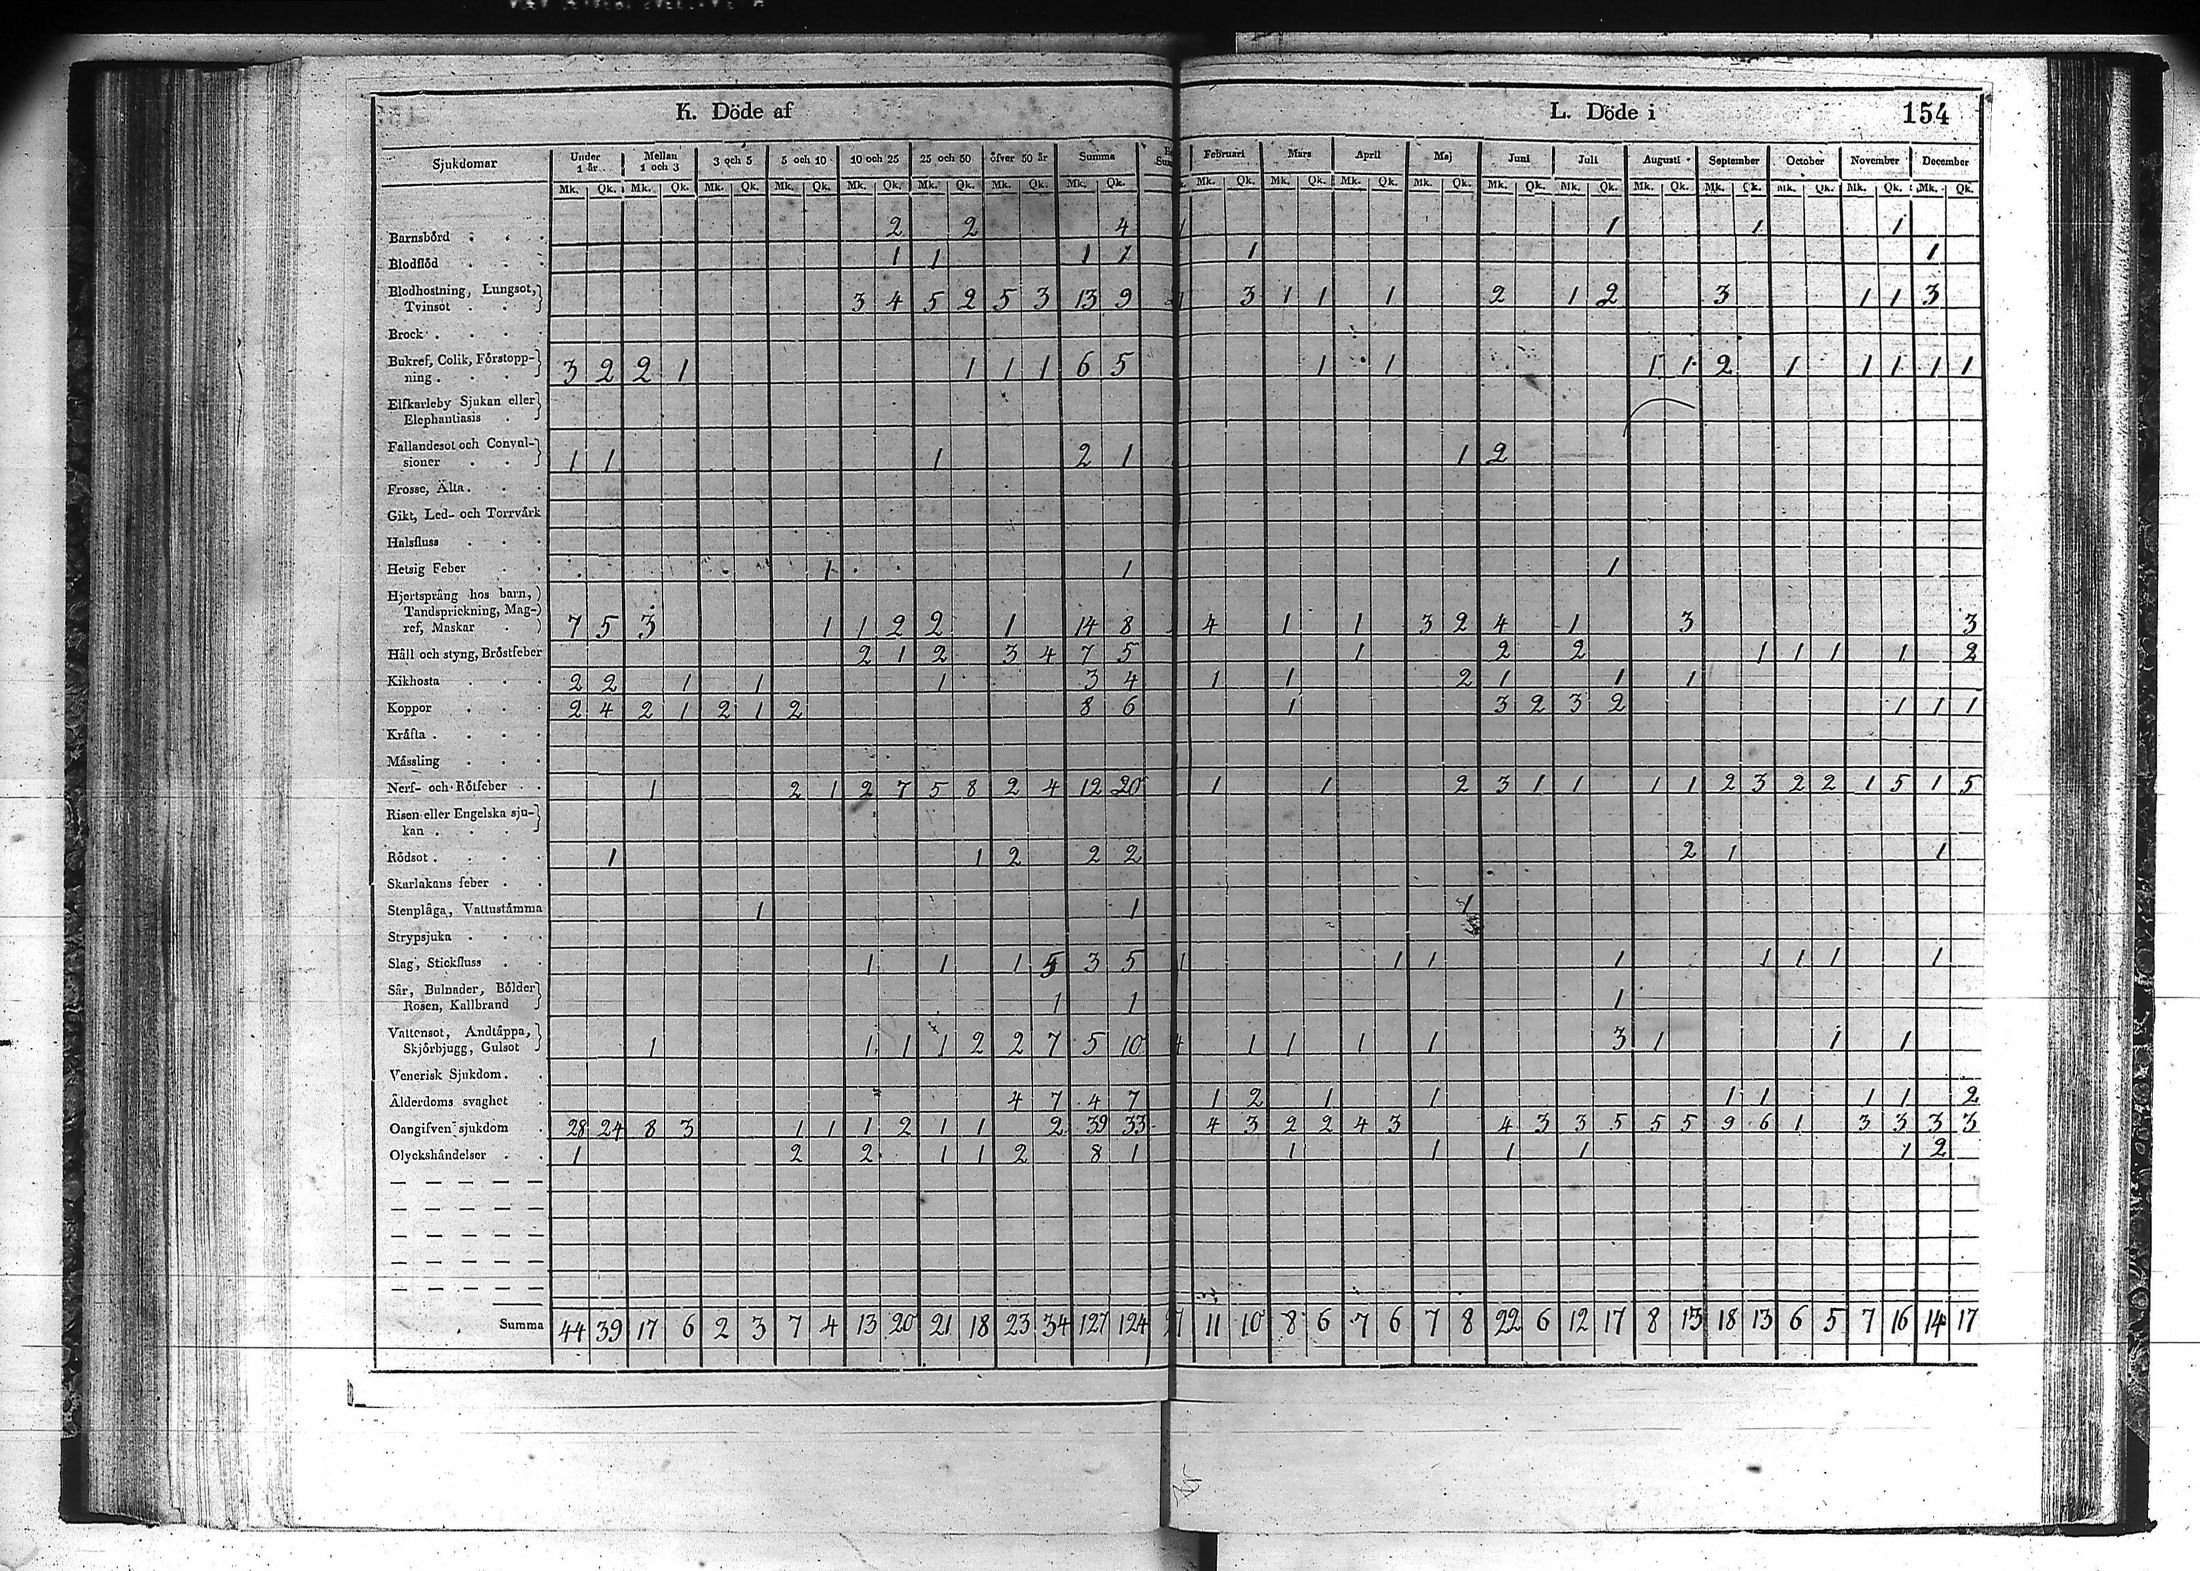 K. Döde af L. Döde i 154
Sjukdomar Under 1 år. Mellan 1 och 3 3 och 5 5 och 10 10 och 25 25 och 50 öfver 50 år Summa Februari Mars April Maj Juni Juli Augusti September October November December
Mk. Qk. Mk. Qk. Mk. Qk. Mk. Qk. Mk. Qk. Mk. Qk. Mk. Qk. Mk. Qk. Mk. Qk. Mk. Qk. Mk. Qk. Mk. Qk. Mk. Qk. Mk. Qk. Mk. Qk. Mk. Qk. Mk. Qk. Mk. Qk. Mk. Qk.
Barnsbörd 2 2 4 1 1 1 1
Blodflöd 1 1 1 1 1 1
Blodhostning, Lungsot,
Tvinsot 3 4 5 2 5 3 13 9 1 3 1 1 1 2 1 2 3 1 1 3
Brock
Bukref, Colik, Förstopp-
ning 3 2 2 1 1 1 1 6 5 1 1 1 1 2 1 1 1 1 1
Elfkarleby Sjukan eller
Elephantiasis
Fallandesot och Convul-
sioner 1 1 1 2 1 1 2
Frosse, Älta
Gikt, Led- och Torrvärk
Halsfluss
Hetsig Feber 1 1 1
Hjertsprång hos barn,
Tandsprickning, Mag-
ref, Maskar 7 5 3 1 1 2 2 1 14 8 4 1 1 3 2 4 1 3 3
Håll och styng, Bröstfeber 2 1 2 3 4 7 5 1 2 2 1 1 1 1 2
Kikhosta 2 2 1 1 1 3 4 1 1 2 1 1 1
Koppor 2 4 2 1 2 1 2 8 6 1 3 2 3 2 1 1 1
Kräfta
Mässling
Nerf- och Rötfeber 1 2 1 2 7 5 8 2 4 12 20 1 1 2 3 1 1 1 1 2 3 2 2 1 5 1 5
Risen eller Engelska sju-
kan
Rödsot 1 1 2 2 2 2 1 1
Skarlakans feber
Stenplåga, Vattustämma 1 1 1
Strypsjuka
Slag, Stickfluss 1 1 1 5 3 5 1 1 1 1 1 1 1 1
Sår, Bulnader, Bölder
Rosen, Kallbrand 1 1 1
Vattensot, Andtäppa,
Skjörbjugg, Gulsot 1 1 1 1 2 2 7 5 10 4 1 1 1 1 3 1 1 1
Venerisk Sjukdom
Ålderdoms svaghet 4 7 4 7 1 2 1 1 1 1 1 1 2
Oangifven sjukdom 28 24 8 3 1 1 1 2 1 1 2 39 33 4 3 2 2 4 3 4 3 3 5 5 5 9 6 1 3 3 3 3
Olyckshändelser 1 2 2 1 1 2 8 1 1 1 1 1 1 2
Summa 44 39 17 6 2 3 7 4 13 20 21 18 23 34 127 124 11 10 8 6 7 6 7 8 22 6 12 17 8 13 18 13 6 5 7 16 14 17